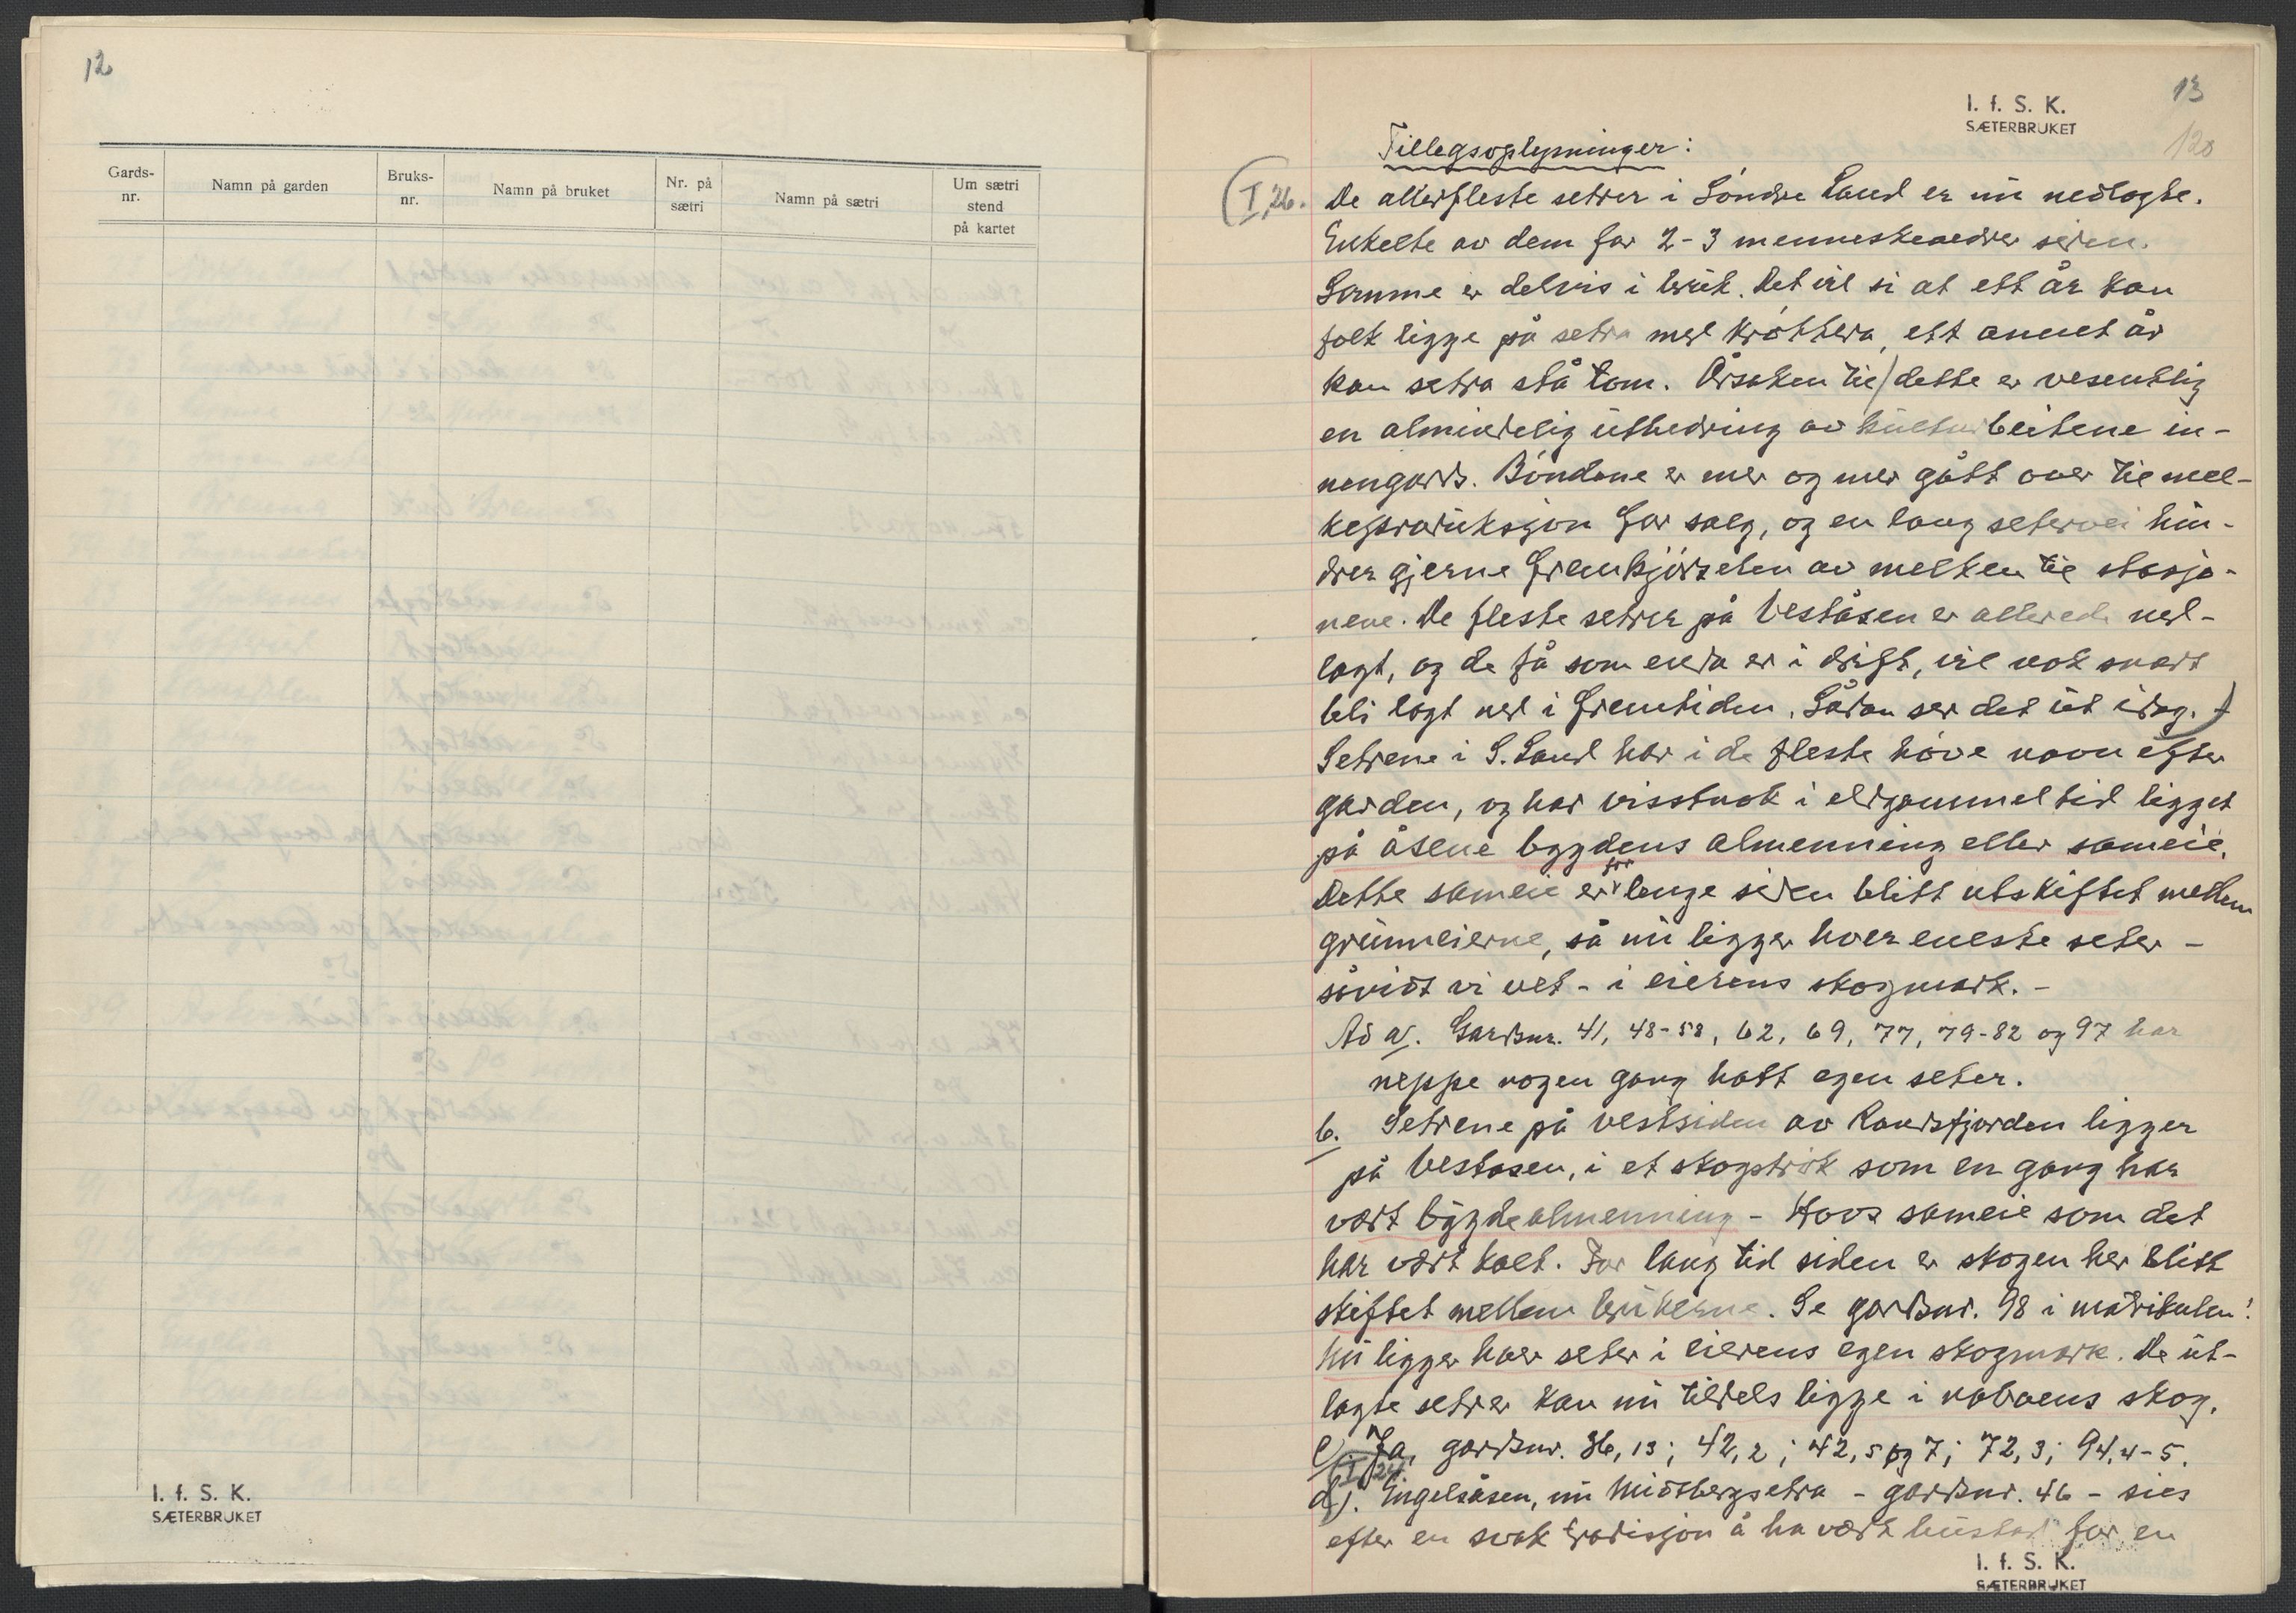 12
Gards-
nr.
Namn på garden
Bruks-
nr.
Namn på bruket
Nr. på
sætri
Namn på sætri
Um sætri
stend
på kartet
I. f. S. K.
SÆTERBRUKET
13
I. f. S. K.
SÆTERBRUKET
120
Tillegsoplysninger:
(I, 26. De allerfleste setrer i Söndre Land er nu nedlagte.
Enkelte av dem for 2-3 menneskealdrer siden.
Somme er delvis i bruk. Det vil si at ett år kan
folk ligge på setra med krøttera, ett annet år
kan setra stå tom. Årsaken til) dette er vesentlig
en almindelig utbedring av kulturbeitene in-
nengards. Böndene er mer og mer gått over til mel-
keproduksjon for salg, og en lang setervei hin-
drer gjerne fremkjörselen av melken til stasjo-
nene. De fleste setrer på Veståsen er allerede ned-
lagt, og de få som enda er i drift, vil nok snart
bli lagt ned i fremtiden. Sådan ser det ut idag. )
Setrene i S. Land har i de fleste höve navn efter
garden, og har visstnok i eldgammel tid ligget
på åsene bygdens almenning eller sameie.
Dette sameie er for lenge siden blitt utskiftet mellem
grunneierne, så nu ligger hver eneste seter -
såvidt vi vet - i eierens skogmark. -
Ad a/. Gardsnr. 41, 48-58, 62, 69, 77, 79-82 og 97 har
neppe nogen gang hatt egen seter.
b. Setrene på vestsiden av Randsfjorden ligger
på Veståsen, i et skogströk som en gang har
vært bygdealmenning - Hovs sameie som det
har vært kalt. For lang tid siden er skogen her blitt
skiftet mellem brukerne. Se gardsnr. 98 i matrikulen!
Nu ligger hver seter i eierens egen skogmark. De ut-
lagte setrer kan nu tildels ligge i naboens skog.
c). Ja, gardsnr. 36,13; 42,2; 42,5 og 7; 72,3; 94,4-5.
(I, 24.
d). Engelsåsen, nu Midtbergsetra - gardsnr. 46 - sies
efter en svak tradisjon å ha vært bustad for en
I. f. S. K.
SÆTERBRUKET